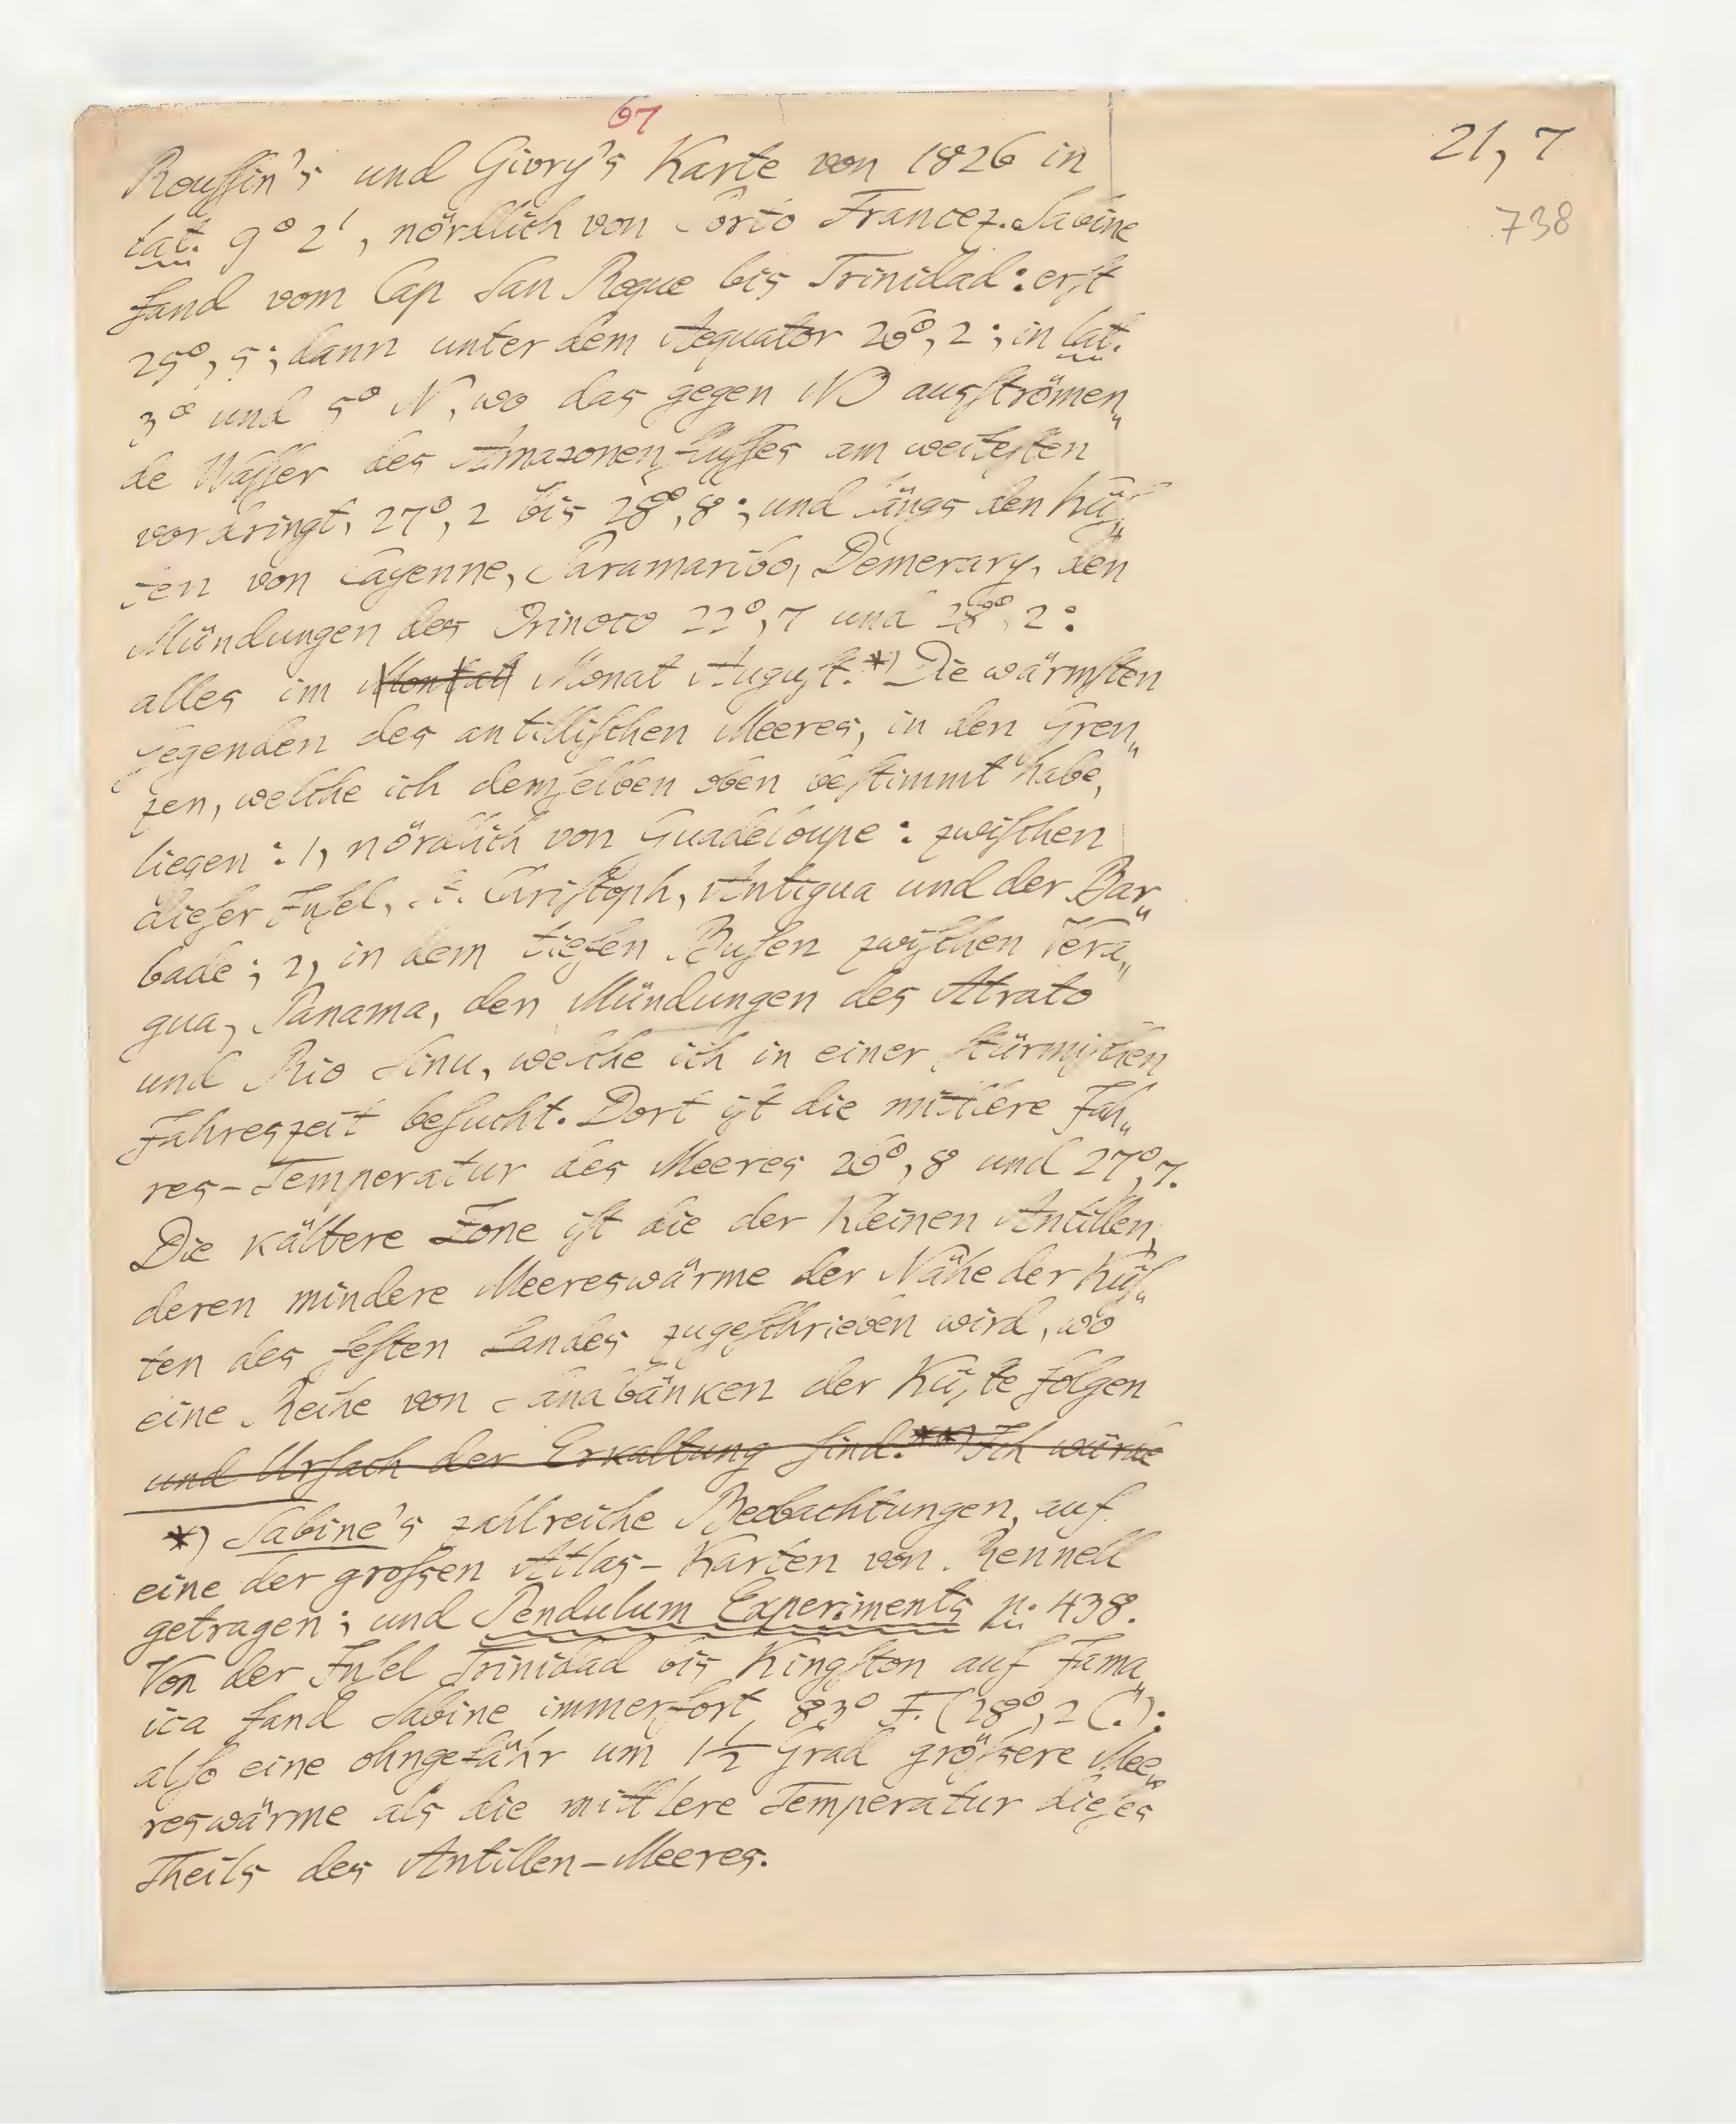 67
21, 7
738
Rouſſin's und Givry's Karte von 1826 in
lat. 9° 2', nördlich von Porto Francez. Sabine
fand vom Cap San Roque bis Trinidad: erſt
25°, 5; dann unter dem Aequator 26°, 2; in lat.
3° und 5° N, wo das gegen NO ausſtrömen„
de Waſſer des Amazonenfluſſes am weiteſten
vordringt, 27°, 2 bis 28°, 8; und längs den Küſ„
ten von Cayenne, Paramaribo, Demerary, den
Mündungen des Orinoco 22°, 7 und 28°, 2:
alles im Monat Auguſt.*) Die wärmſten
Gegenden des antilliſchen Meeres, in den Gren„
zen, welche ich demſelben oben beſtimmt habe,
liegen: 1, nördlich von Guadeloupe: zwiſchen
dieſer Inſel, S. Chriſtoph, Antigua und der Bar„
bade; 2, in dem tiefen Buſen zwiſchen Vera„
gua, Panama, den Mündungen des Atrato
und Rio Sinu, welche ich in einer ſtürmiſchen
Jahreszeit beſucht. Dort iſt die mittlere Jah„
res-Temperatur des Meeres 26°, 8 und 27°, 7.
Die kältere Zone iſt die der Kleinen Antillen,
deren mindere Meereswärme der Nähe der Küſ„
ten des feſten Landes zugeſchrieben wird, wo
eine Reihe von Sandbänken der Küſte folgen
und Urſach der Erkaltung ſind.**) Ich würde
*) Sabine's zahlreiche Beobachtungen, auf
eine der groſsen Atlas-Karten von Rennell
getragen; und Pendulum Experiments p. 438.
Von der Inſel Trinidad bis Kingſton auf Jama„
ica fand Sabine immerfort 83° F. (28°, 2 C.);
alſo eine ohngefähr um 1½ Grad gröſsere Mee„
reswärme als die mittlere Temperatur dieſes
Theils des Antillen-Meeres.